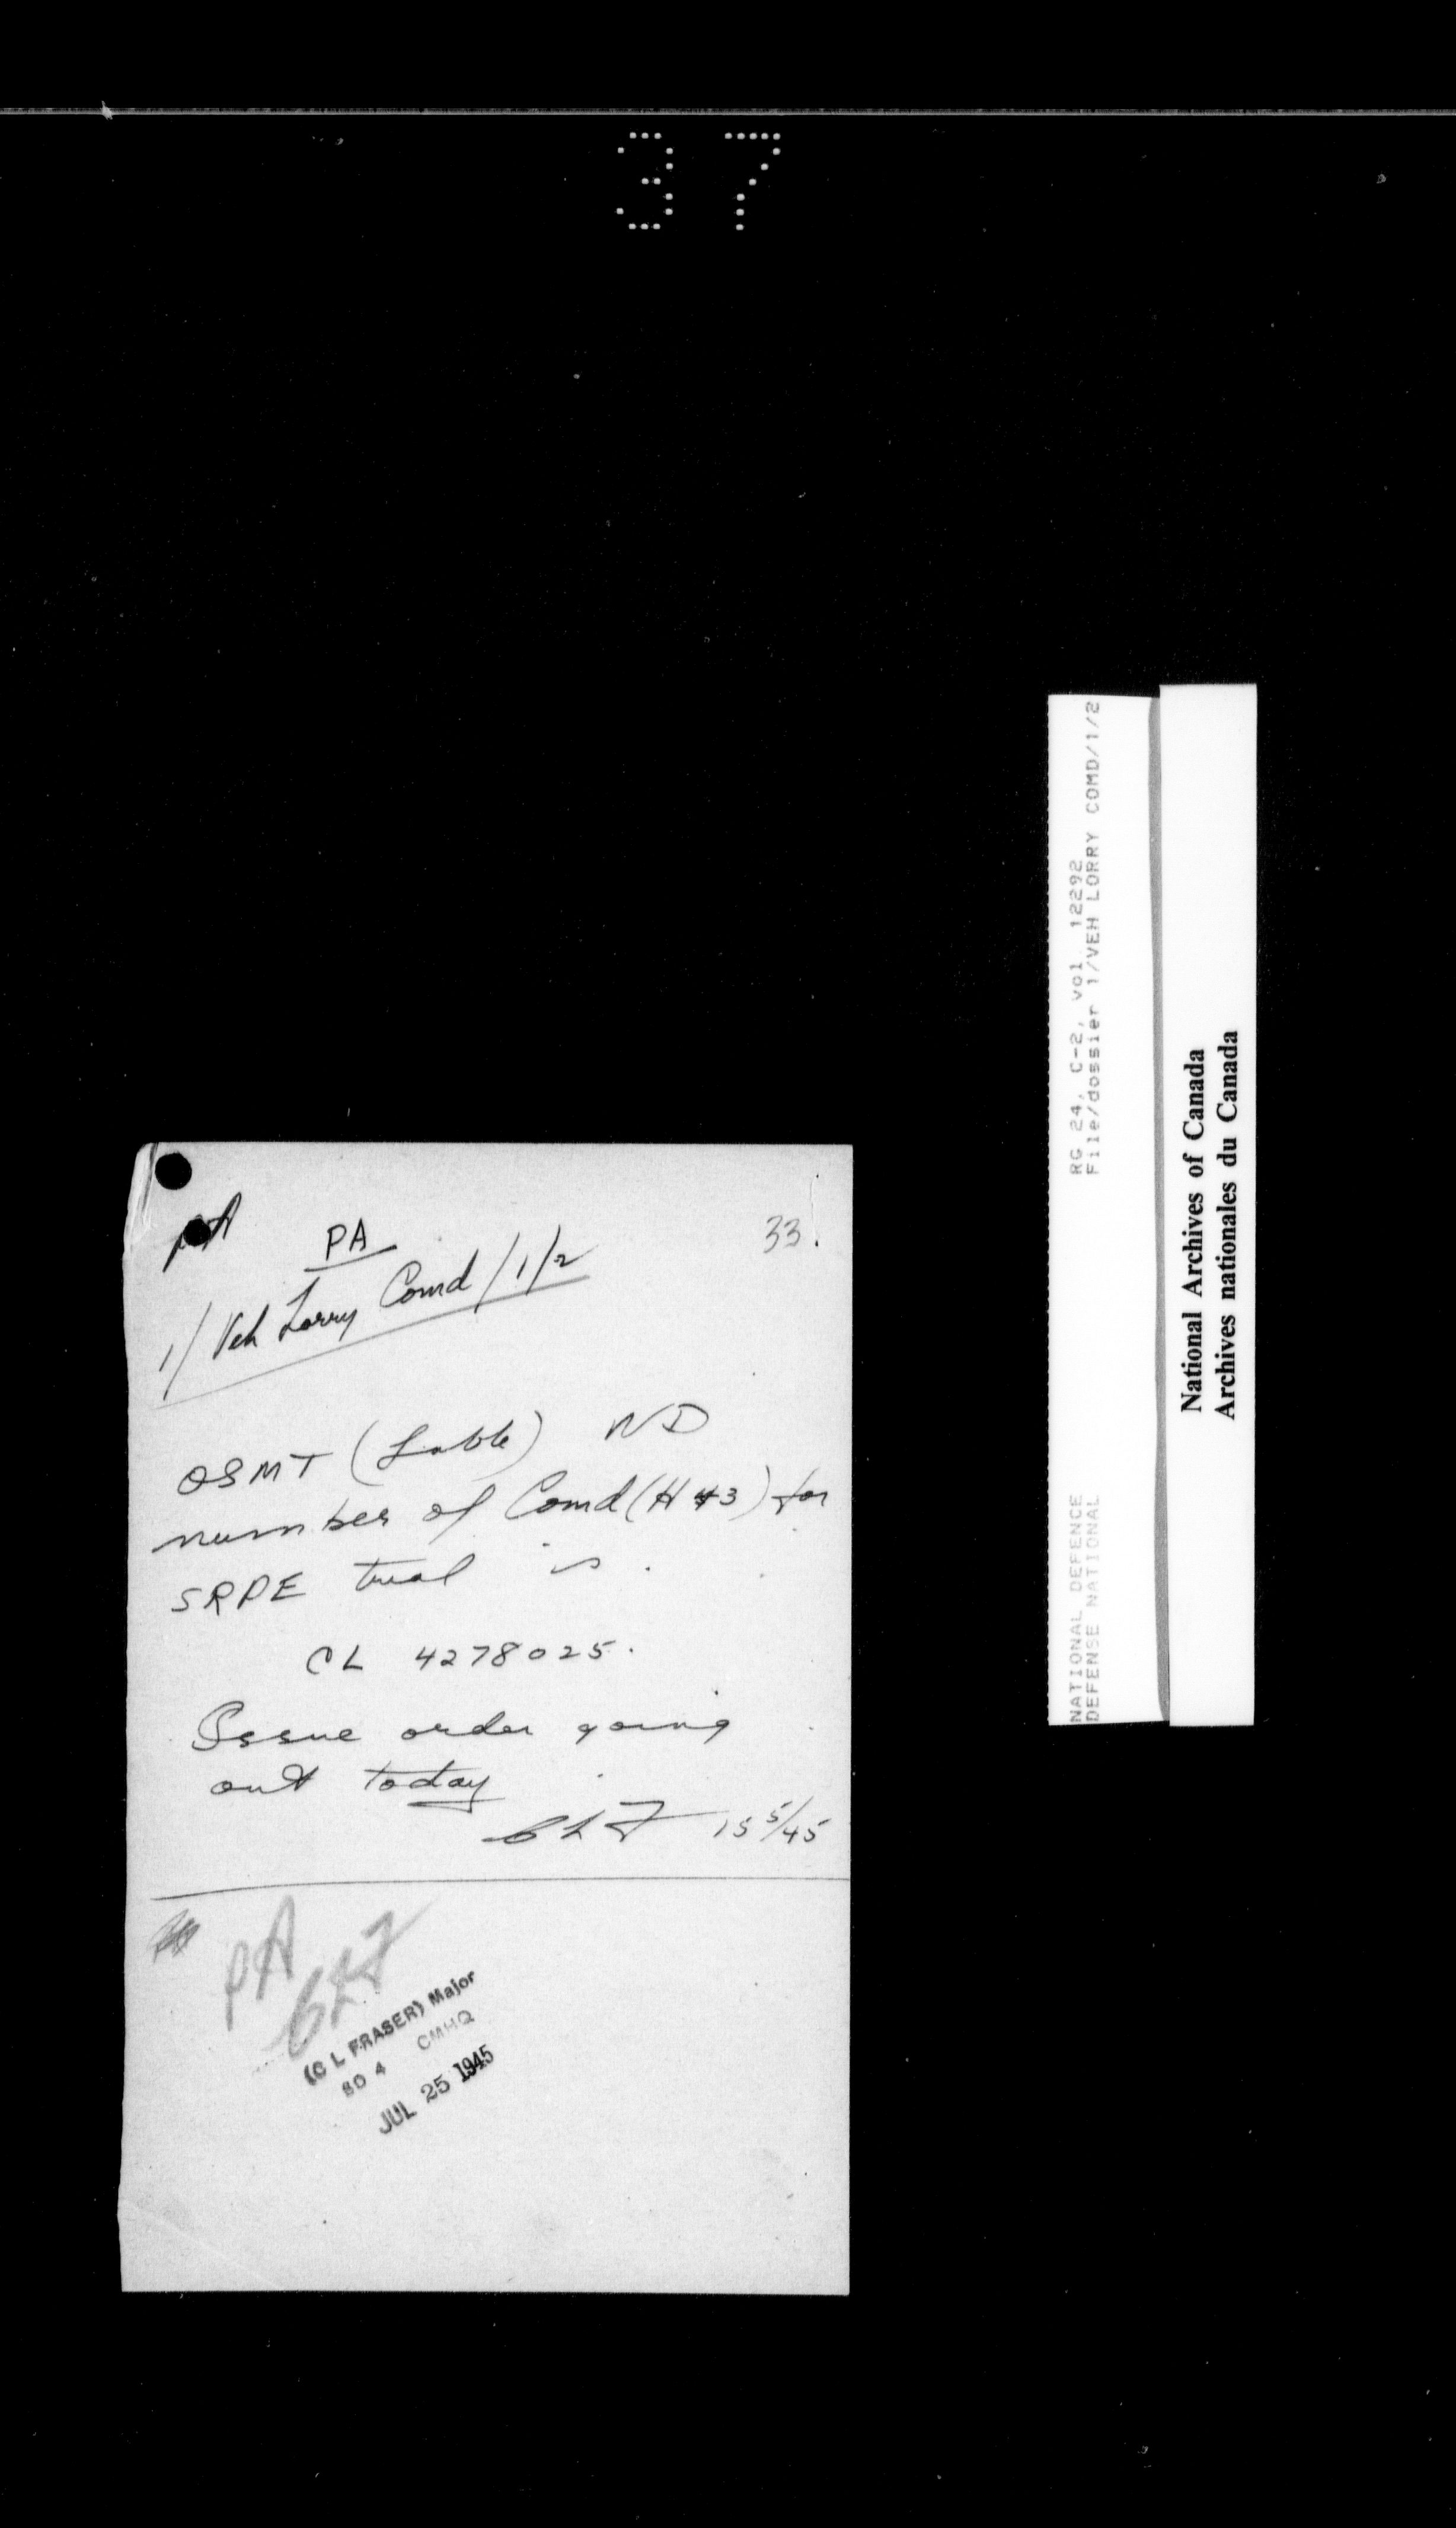 37
PA
PA
33.
1/Veh Lorry Comd/1/2
OSMT ( ) ND
number of Comd (H 43) for
SRDE trial is
CL 4278025.
Issue order going
out today
CLF 15 5/45
PA
CLF
(C L FRASER) Major
SO 4 CMHQ
JUL 25 1945
RG 24, C-2, vol 12292
File/dossier 1/VEH LORRY COMD/1/2
NATIONAL DEFENCE
DEFENSE NATIONAL
National Archives of Canada
Archives nationales du Canada